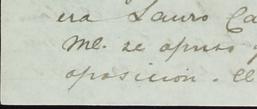 era Lauro Ca
Ml. se opuso
oposición. El